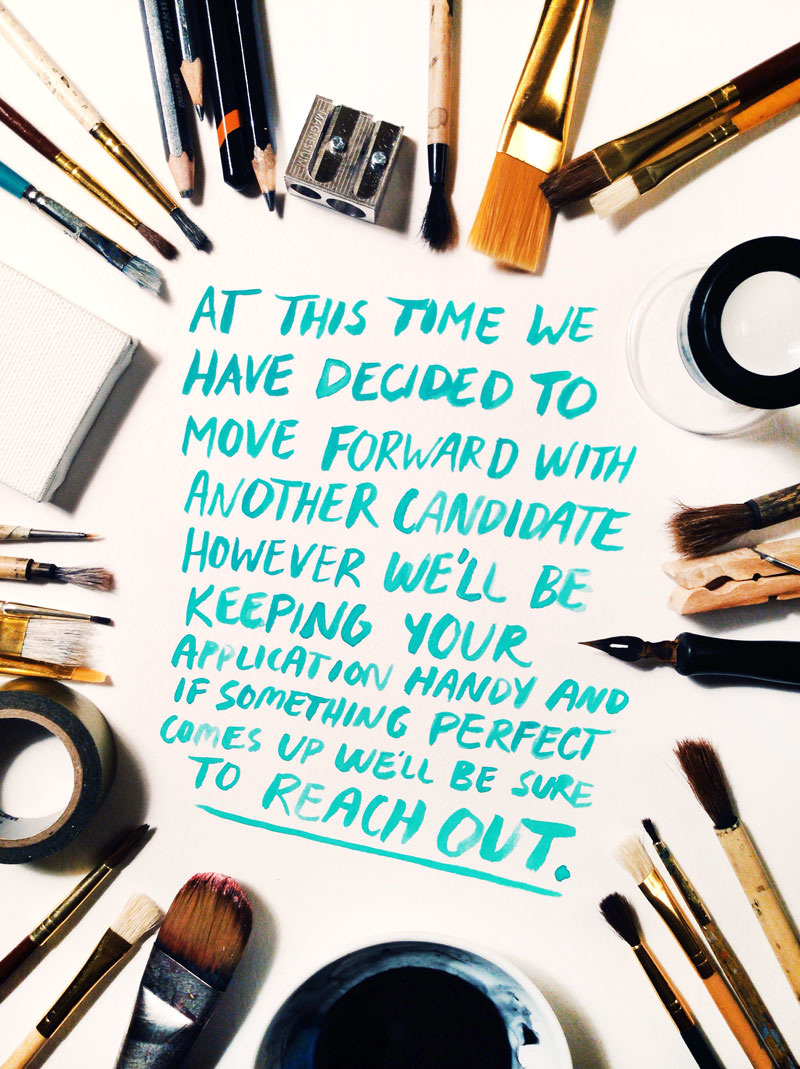 AT THIS TIME WE
HAVE DECIDED TO
MOVE FORWARD WITH
ANOTHER CANDIDATE
HOWEVER WE'LL BE
KEEPING YOUR
APPLICATION HANDY AND
IF SOMETHING PERFECT
COMES UP WE'LL BE SURE
TO REACH OUT.